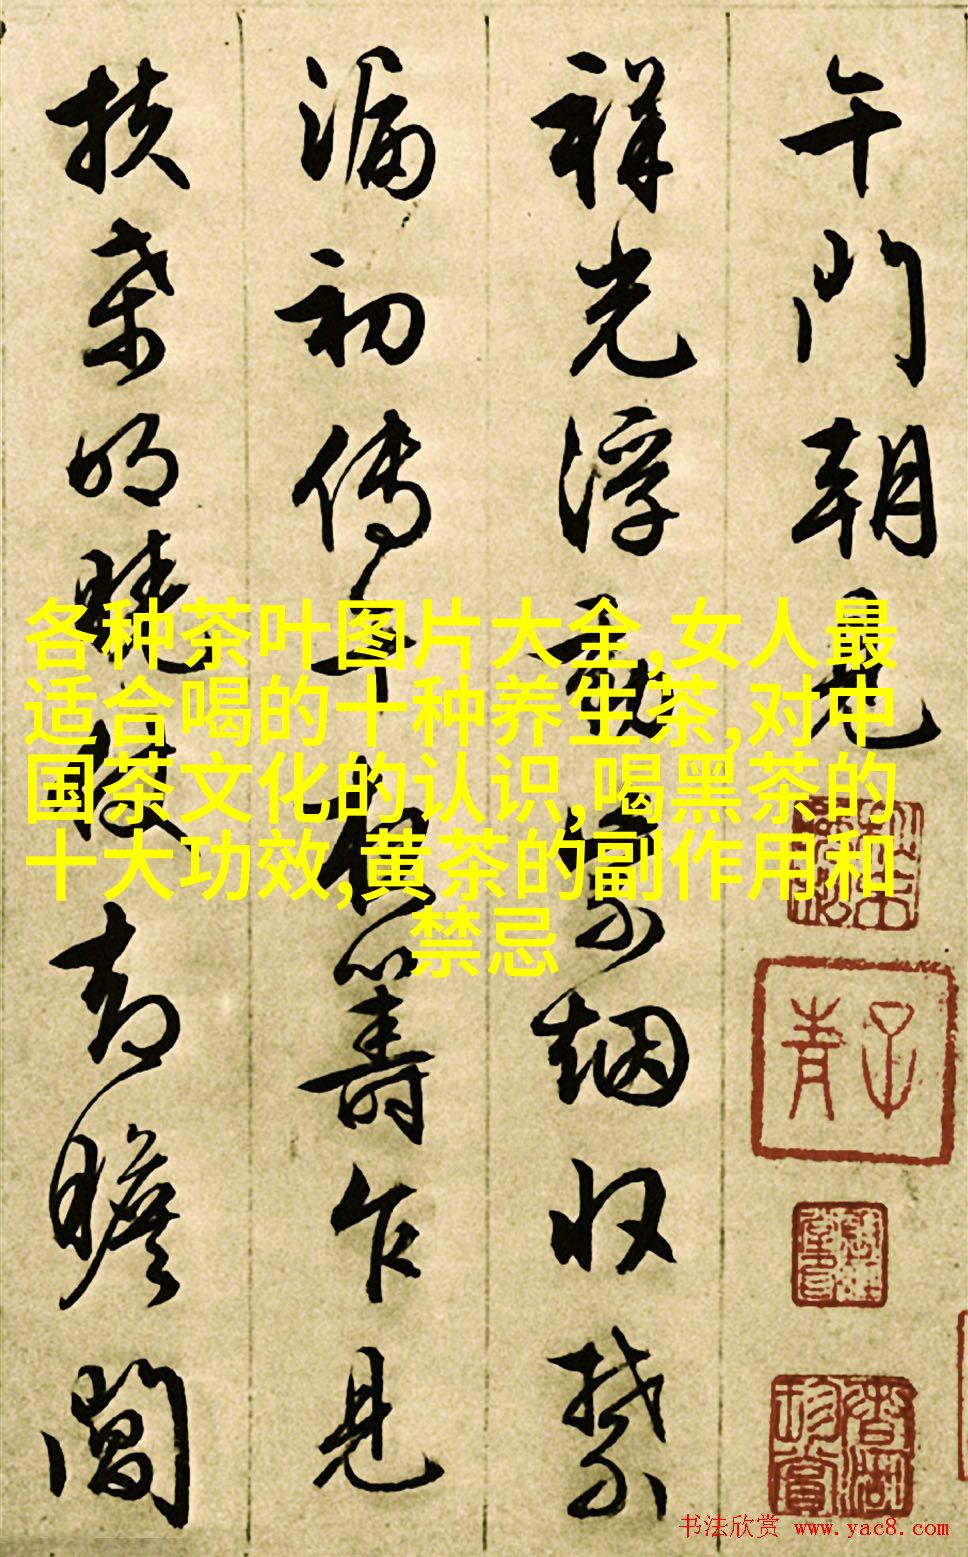 午門朝見
祥光浮動紫烟收禁
漏初传夜籌乍見
扶桑明曉却瞻閶
各种茶叶图片大全,女人最
适合喝的十种养生茶,对中
国茶文化的认识,喝黑茶的
十大功效,黄茶的副作用和
禁忌
子青
书法欣赏 www.yac8.com